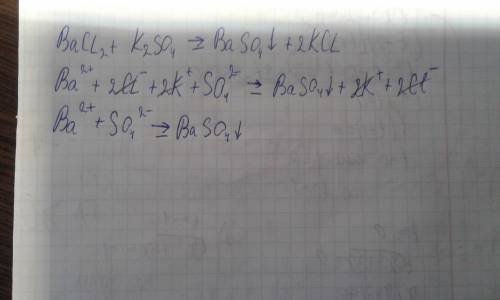 BaCl₂ + K₂SO₄ ⇒ BaSO₄↓ + 2KCl
Ba²⁺ + 2Cl⁻ + 2K⁺ + SO₄²⁻ ⇒ BaSO₄↓ + 2K⁺ + 2Cl⁻
Ba²⁺ + SO₄²⁻ ⇒ BaSO₄↓